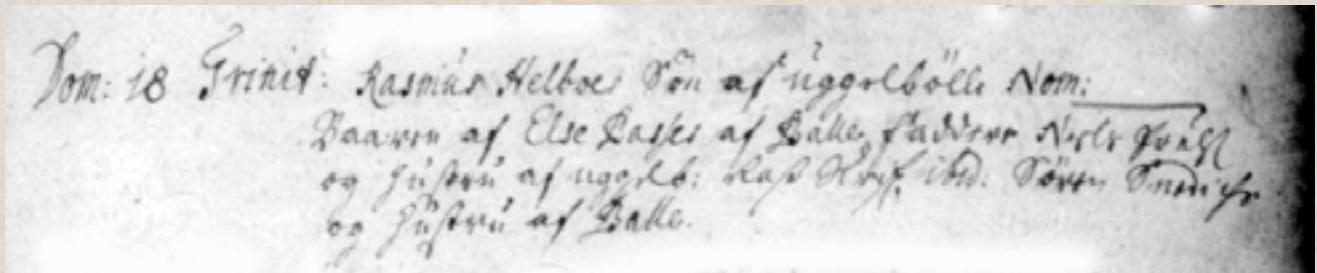 Dom: 18 Trinit: Rasmus Helboes Sön af üggelbölle Nom:
Baaren af Else Basses af Balle, faddere Niels
og Hustru af uggelb: Rasz ibid: Sören
og Hustru af Balle.